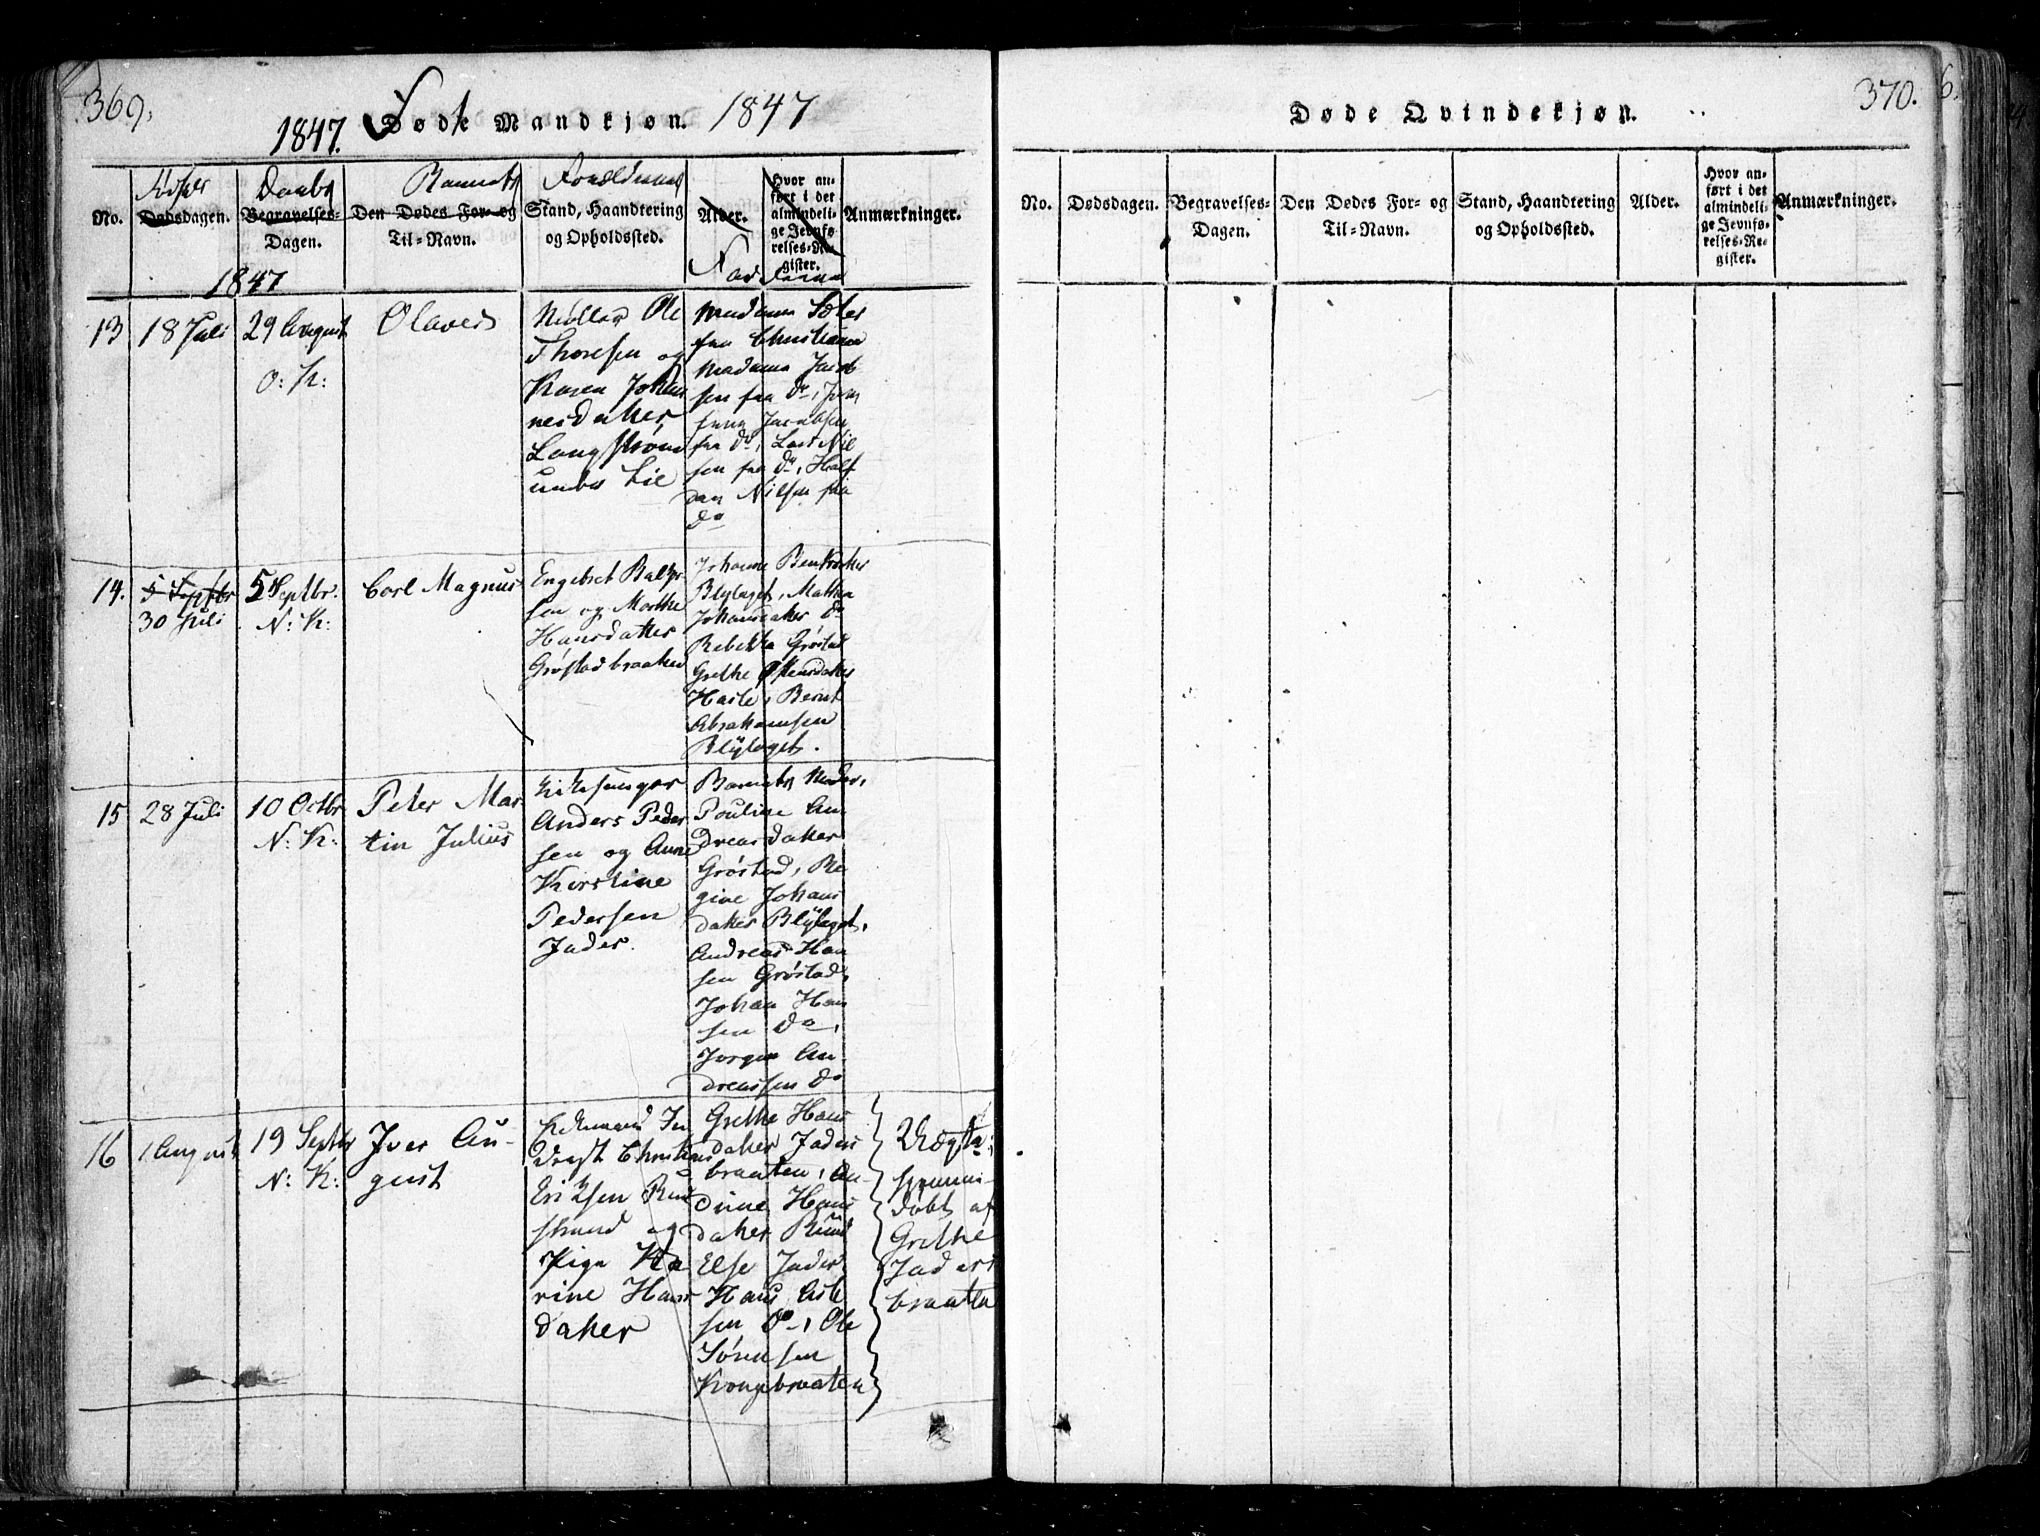 369.
1847. Døde Mandkjøn. 1847
Daabs Barnets Forældrenes
No. Dødsdagen. Begravelses-Dagen. Den Dødes For- og Til-Navn. Stand, Haandtering og Opholdssted. Alder. Hvor anført i det almindelige Jevnførelses-Register. Anmærkninger.
Fadderne
1847
13
18 Juli
29 August
O: K:
Olaves
Møller Ole
Thoresen og
Karen Johan
nesdatter
Langstrøm
unde Lie
Madame
fra Christiania
Madame Jacob
sen fra do,
Jacobsen
fra do, Lars Nil
sen fra do, Half
dan Nilsen fra
do
14.
5 Septbr
30 Juli
5 Septbr.
N: K:
Carl Magnus
Engebret Baltzer
sen og Marthe
Hansdatter
Grøstadbraaten
Johanne
Blylaget, Mathea
Johansdatter do
Rebekka Grøstad
Grethe Ostensdatter
Hasle, Bernt
Abrahamsen
Blylaget.
15
28 Juli
10 Octbr
N: K:
Peter Mar
tin Julius
Kirkesanger
Anders Peder
sen og Anne
Kirstine
Pedersen
Jader.
Barnets Moder,
Pouline An
dreasdatter
Grøstad, Re
gine Johans
datter Blylaget,
Andreas Han
sen Grøstad,
Johan Han
sen do,
Jørgen An
dreassen do
16
1 August
19 Septbr
N: K:
Iver Au-
gust
Christian
Eriksen Rud
strand og
Pige Ka
rine Hans
datter
Grethe Hans
datter Jaders
braaten, An
dine Hans
datter Rund
Else Jader
Hans Ole
sen do, Ole
Sørensen
Kongebraaten
Uægte;
hjemme-
døbt af
Grethe
Jaders
braaten
370.
Døde Qvindekjøn.
No. Dødsdagen. Begravelses-Dagen. Den Dødes For- og Til-Navn. Stand, Haandtering og Opholdssted. Alder. Hvor anført i det almindelige Jevnførelses-Register. Anmærkninger.